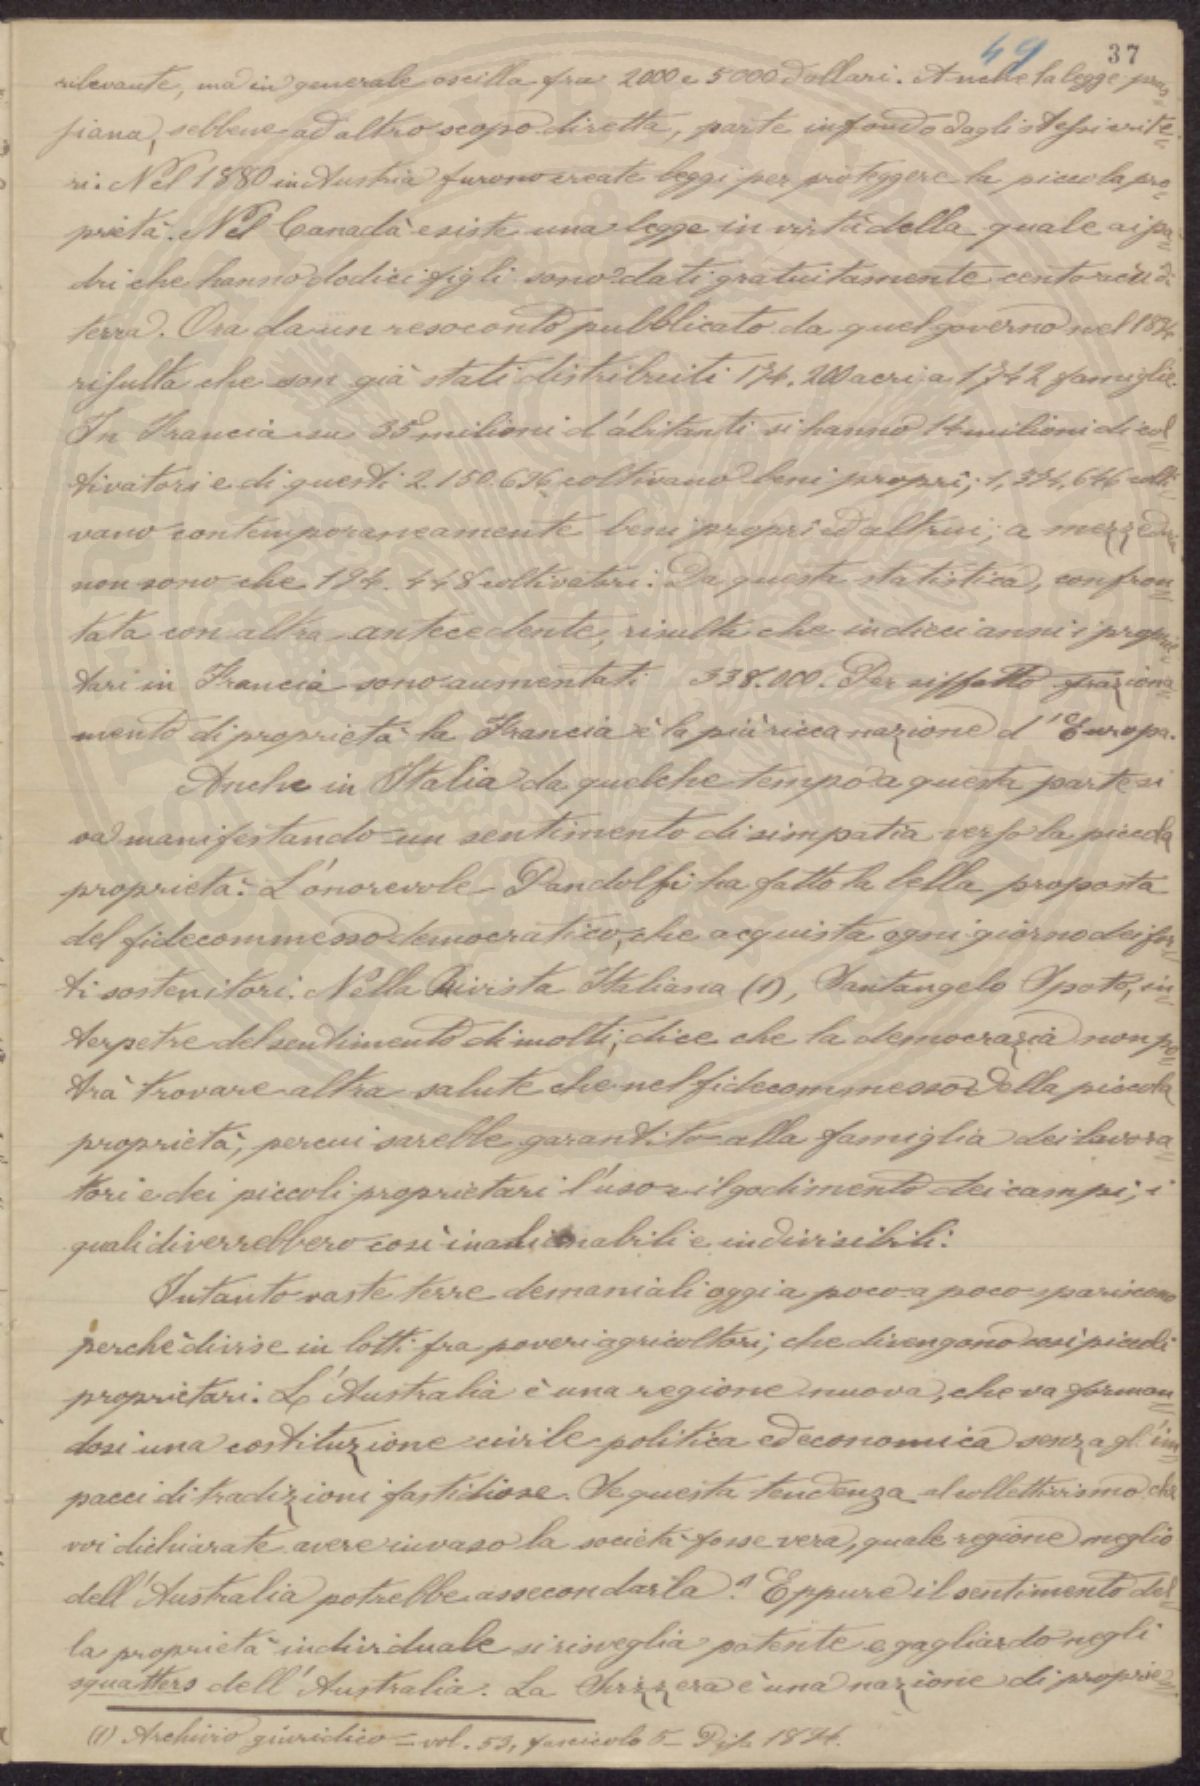 49 37
rilevante, ma in generale oscilla fra 2000 e 5000 dollari. Anche la legge prus=
siana, sebbene ad altro scopo diretta, parte in fondo dagli stessi crite=
ri. Nel 1880 in Austria furono create leggi per proteggere la piccola pro=
prietà. Nel Canadà esiste una legge in virtù della quale ai pa=
dri che hanno dodici figli sono dati gratuitamente cento acri di
terra. Ora da un resoconto pubblicato da quel governo nel 1894
risulta che son già stati distribuiti 174.200 acri a 1742 famiglie.
In Francia su 35 milioni d'abitanti si hanno 14 milioni di col=
tivatori e di questi 2.150.696 coltivano beni propri; 1,374,646 colti=
vano contemporaneamente beni propri ed altrui; a mezzadria
non sono che 194.448 coltivatori. Da questa statistica, confron=
tata con altra antecedente, risulta che in dieci anni i proprie=
tari in Francia sono aumentati 338.000. Per siffatto fraziona=
mento di proprietà la Francia è la più ricca nazione d'Europa.
Anche in Italia da qualche tempo a questa parte si
va manifestando un sentimento di simpatia verso la piccola
proprietà. L'onorevole Pandolfi ha fatto la bella proposta
del fidecommesso democratico, che acquista ogni giorno dei for=
ti sostenitori. Nella Rivista Italiana (1), Santangelo Spoto, in=
terpetre del sentimento di molti, dice che la democrazia non po=
trà trovare altra salute che nel fidecommesso della piccola
proprietà, percui sarebbe garantito alla famiglia dei lavora=
tori e dei piccoli proprietari l'uso e il godimento dei campi, i
quali diverrebbero così inalienabili e indivisibili.
Intanto vaste terre demaniali oggi a poco a poco spariscono
perchè divise in lotti fra poveri agricoltori, che divengono così piccoli
proprietari. L'Australia è una regione nuova, che va forman=
dosi una costituzione civile politica ed economica senza gl'im=
pacci di tradizioni fastidiose. Se questa tendenza al collettivismo che
voi dichiarate avere invaso la società fosse vera, quale regione meglio
dell'Australia potrebbe assecondarla? Eppure il sentimento del=
la proprietà individuale si risveglia potente e gagliardo negli
squatters dell'Australia. La Svizzera è una nazione di proprie=
(1) Archivio giuridico = vol. 53, fascicolo 5 = Pisa 1894.